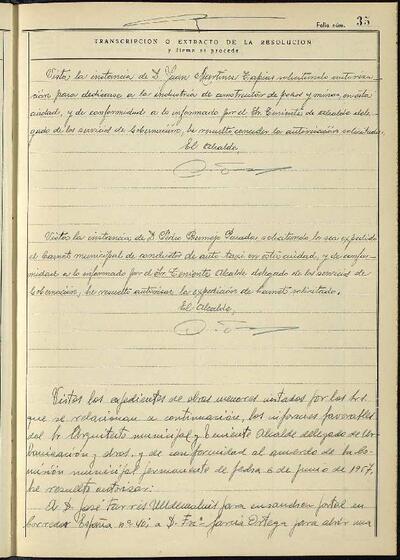 Folio núm. 35
TRANSCRIPCION O EXTRACTO DE LA RESOLUCION
y firma si procede
Vista la instancia de D. Juan Martinez Tapias solicitando autoriza-
ción para dedicarse a la industria de constructor de pozos y minas, en esta
ciudad, y de conformidad a lo informado por el Sr. Teniente de Alcalde dele-
gado de los servicios de Gobernación, he resuelto conceder la autorización solicitada.
El Alcalde,
Vista la instancia de D. Pedro Bermejo solicitando le sea expedido
el Carnet municipal de conductor de auto taxi en esta ciudad, y de confor-
midad a lo informado por el Sr. Teniente Alcalde delegado de los servicios de
Gobernación, he resuelto autorizar la expedición de Carnet solicitado.
El Alcalde,
Vistos los expedientes de obras menores instados por los Srs.
que se relacionan a continuación, los informes favorables
del Sr. Arquitecto municipal y Teniente Alcalde delegado de Ur-
banización y Obras, y de conformidad al acuerdo de la Co-
misión municipal permanente de fecha 6 de Junio de 1957,
he resuelto autorizar:
A D. José Farrés para ensanchar portal en
Corredor España nº 40; a D. Frcº García Ortega para abrir una